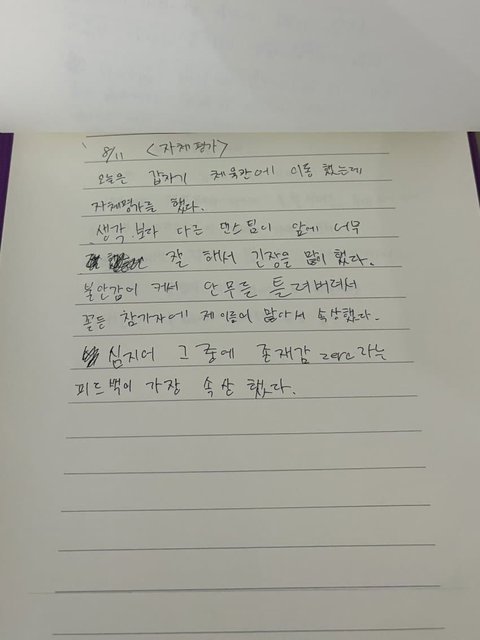 8/11 <자체평가>
오늘은 갑자기 체육관에 이동 했는데
자체평가를 했다.
생각보다 다른 댄스팀이 앞에 너무
잘 해서 긴장을 많이 했다.
불안감이 커서 안무를 틀려버려서
꼴등 참가자에 제 이름이 많아서 속상했다.
심지어 그 중에 존재감 zero라는
피드백이 가장 속상 했다.